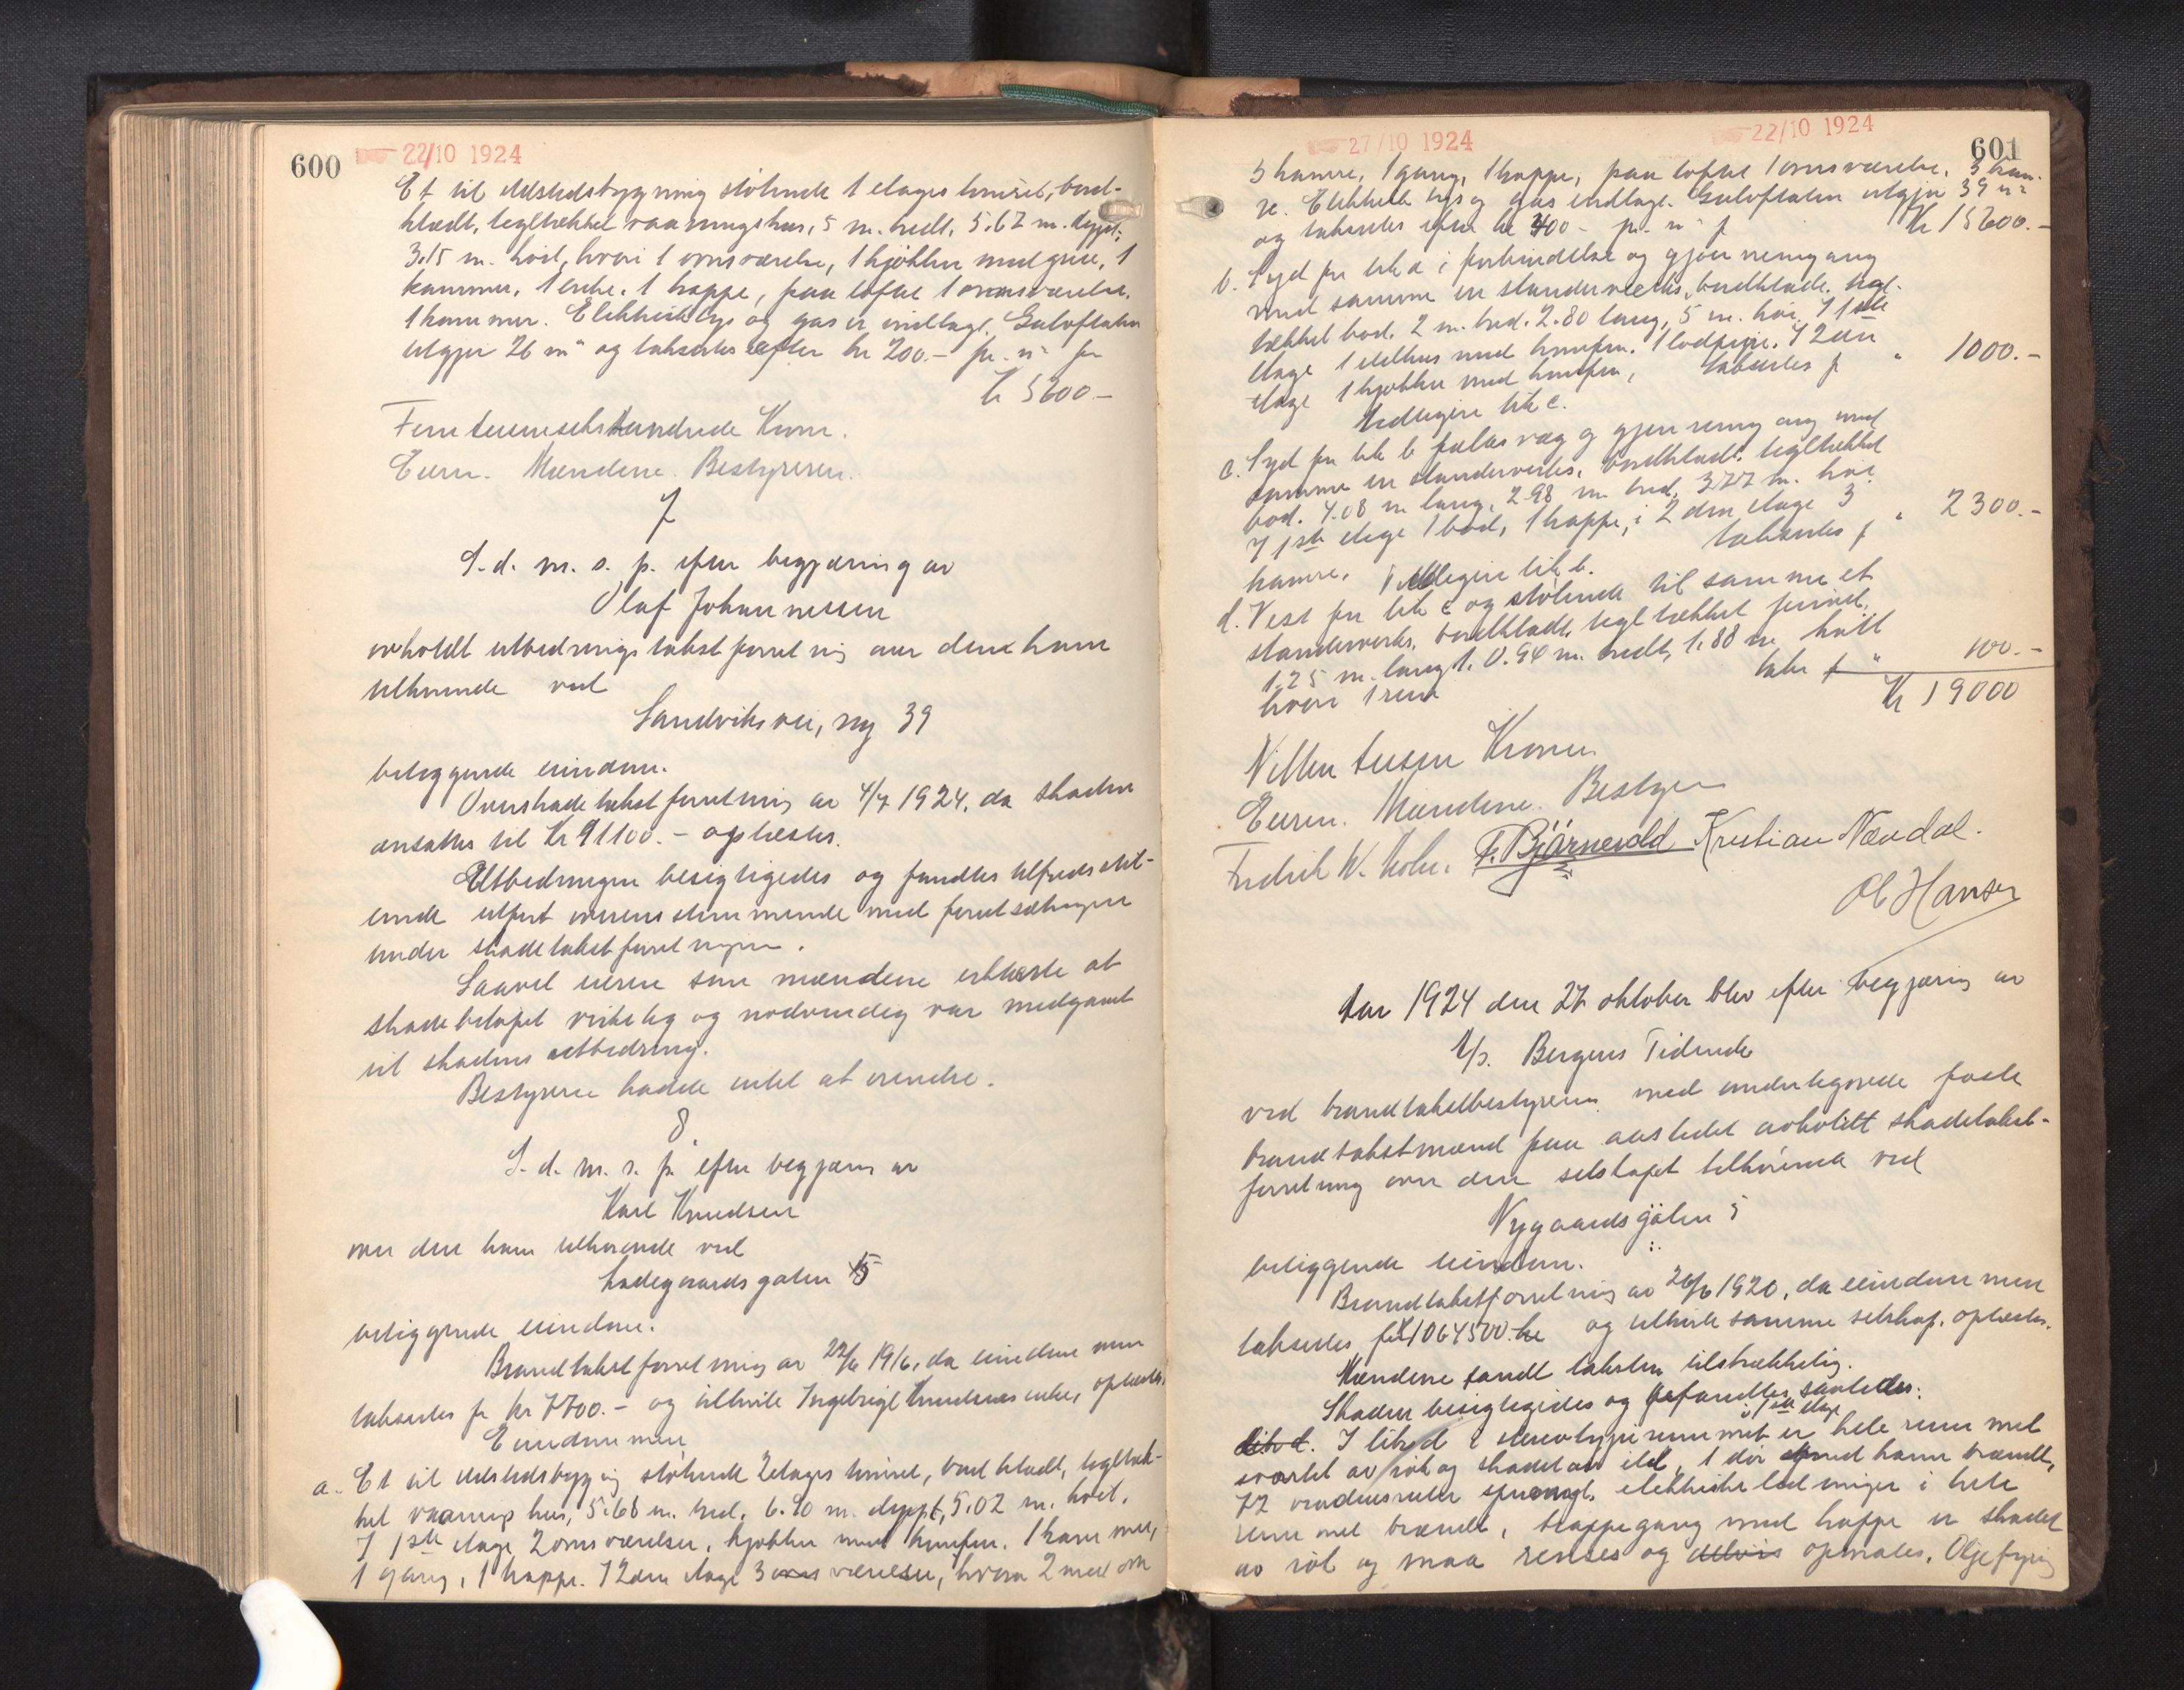 600
22/10 1924
Et til Ildstedsbygning stötende 1 etages tømret, bord-
klædt, tegltækket vaaningshus, 5 m. bredt, 5.62 m. dypt,
3.15 m. höit, hvori 1 ovnsværelse, 1 kjökken med grue, 1
kammer, 1 entre, 1 trappe, paa loftet 1 ovnsværelse,
1 kammer. Elektrisk lys og gas er indlagt. Gulvflaten
utgjör 26 m² og takseres efter kr 200.- pr. m² for
kr 5200-
Femtusenetohundrede Kroner.
Eieren. Mændene. Bestyreren.
7
S. d. m. s. p. efter begjæring av
Olaf Johannessen
avholdt utbedringstakstforretning over den ham
tilhørende ved
Sandviksvei, ny 39
beliggende eiendom.
Overskadetakstforretning av 4/7 1924, da skaden
ansattes til Kr 91100.- oplæstes.
Utbedringen besigtigedes og fandtes tilfredsstil-
lende utfört overensstemmende med forutsætningen
under skadetakstforretningen.
Saavel eieren som mændene erklærte at
skadebelöpet virkelig og nødvendig var medgaaet
til skadens utbedring.
Bestyreren hadde intet at erindre.
8
S. d. m. s. p. efter begjæring av
Karl Knudsen
over den ham tilhørende ved
Ladegaardsgaten 15
beliggende eiendom.
Brandtakstforretning av 22/6 1916, da eiendommen
takseredes for kr 7700.- og tilhörte Ingebrigt Knudsens enke, oplæstes.
Eiendommen
a. Et til Ildstedsbygning stötende 2 etages tømret, bordklædt, tegltæk-
ket vaaningshus, 5.68 m. bred, 6.90 m. dypt, 5.02 m. höit.
I 1ste etage 2 ovnsværelser, kjökken med komfur, 1 kammer,
1 gang, 1 trappe. I 2den etage 3 værelser, hvorav 2 med ovn
27/10 1924
22/10 1924
601
3 kamre, 1 gang, 1 trappe, paa loftet 1 ovnsværelse, 3 kam-
re. Elektrisk lys og gas indlagt. Gulvflaten utgjör 39 m²
og takseres efter kr 400- pr. m² for
Kr 15600.-
b. Syd for litr a i forbindelse og gjennemgang
med samme en standerverks, bordklædt, tegl-
tækket bod. 2 m. bred. 2.80 lang, 5 m. höi. I 1ste
etage 1 ildhus med komfur, 1 lodpipe. I 2den
etage 1 kjökken med komfur, takseres for " 1000.-
Vedligger litr c.
c. Syd for litr b fælles væg og gjennemgang med
samme en standerverks, bordklædt, tegltækket
bod. 4.08 m lang, 2.98 m bred, 3.77 m. höi.
I 1ste etage 1 bod, 1 trappe, i 2den etage 3
kamre. takseres for " 2300.-
Vedligger litr b.
d. Vest for litr c og stötende til samme et
standerverks, bordklædt, tegltækket privet,
1.25 m. langt, 0.94 m. bredt, 1.88 m höit
hvori 1 rum takseres for " 100.-
Kr 19000
Nitten tusen Kroner
Eieren. Mændene. Bestyrer
Fredrik W. Holm. F. Bjørnevold Kristian Nævdal.
Ol Hansen
Aar 1924 den 27 oktober blev efter begjæring av
A/s. Bergens Tidende
ved brandtakstbestyreren med undertegnede faste
brandtakstmænd paa aastedet avholdt skadetakst-
forretning over den selskapet tilhörende ved
Nygaardsgaten 5
beliggende eiendom.
Brandtakstforretning av 26/6 1920, da eiendommen
takseredes for kr 1064500.- og tilhörte samme selskap, oplæstes.
Mændene fandt taksten tilstrækkelig.
Skaden besigtigedes og befandtes saaledes:
I litr d i 1ste etage i stereotypirummet er hele rummet
svartet av röik og skadet av ild, 1 dör med karm brændt,
72 vindusruter sprængt, elektriske ledninger i hele
rummet brændt, trappegang med trappe er skadet
av röik og maa renses og delvis opmales. Oljefyring